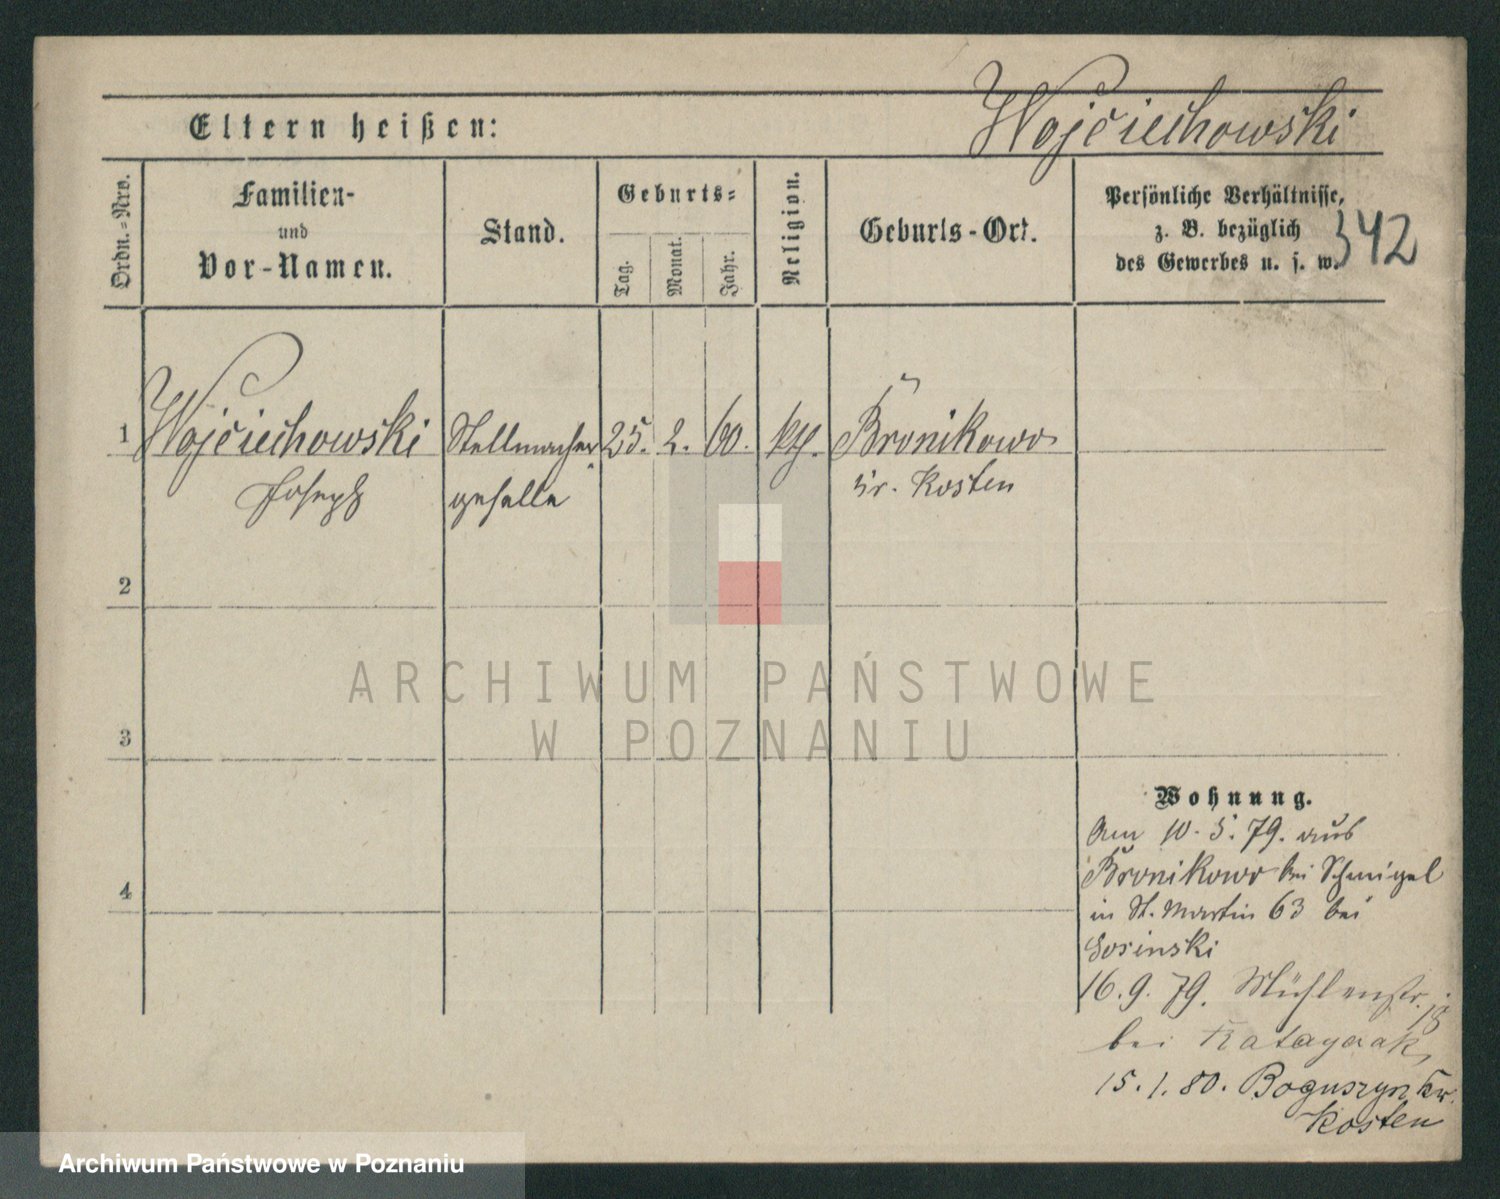 Wojciechowski
Eltern heißen:
Ordn.-Nro.
Familien-
und
Vor-Namen.
Stand.
Geburts-
Tag.
Monat.
Jahr.
Religion.
Geburts-Ort.
Persönliche Verhältnisse,
z. B. bezüglich
des Gewerbes u. s. w.
342
1 Wojciechowski Stellmacher 25. 2. 60. kth. Bronikowo
Joseph geselle Kr. Kosten
2
3
4
Wohnung.
Am 10. 5. 79. aus
Bronikowo bei Schmigel
in St. Martin 63 bei
Sosinski
16. 9. 79. Mühlenstr. 18
bei
15. 1. 80. Boguszyn Kr.
Kosten
ARCHIWUM PAŃSTWOWE
W POZNANIU
Archiwum Państwowe w Poznaniu